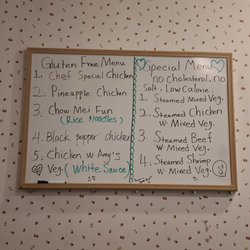 Gluten Free Menu
1. Chef Special Chicken
2. Pineapple Chicken
3. Chow Mei Fun
(Rice Noodles)
4. Black pepper chicken
5. Chicken w. Amy's
Veg. (White Sauce)
Special Menu
no Cholesterol, no
Salt, Low Calorie
1. Steamed Mixed Veg.
2. Steamed Chicken
w. Mixed Veg.
3. Steamed Beef
w. Mixed Veg.
4. Steamed Shrimp
w. Mixed Veg.